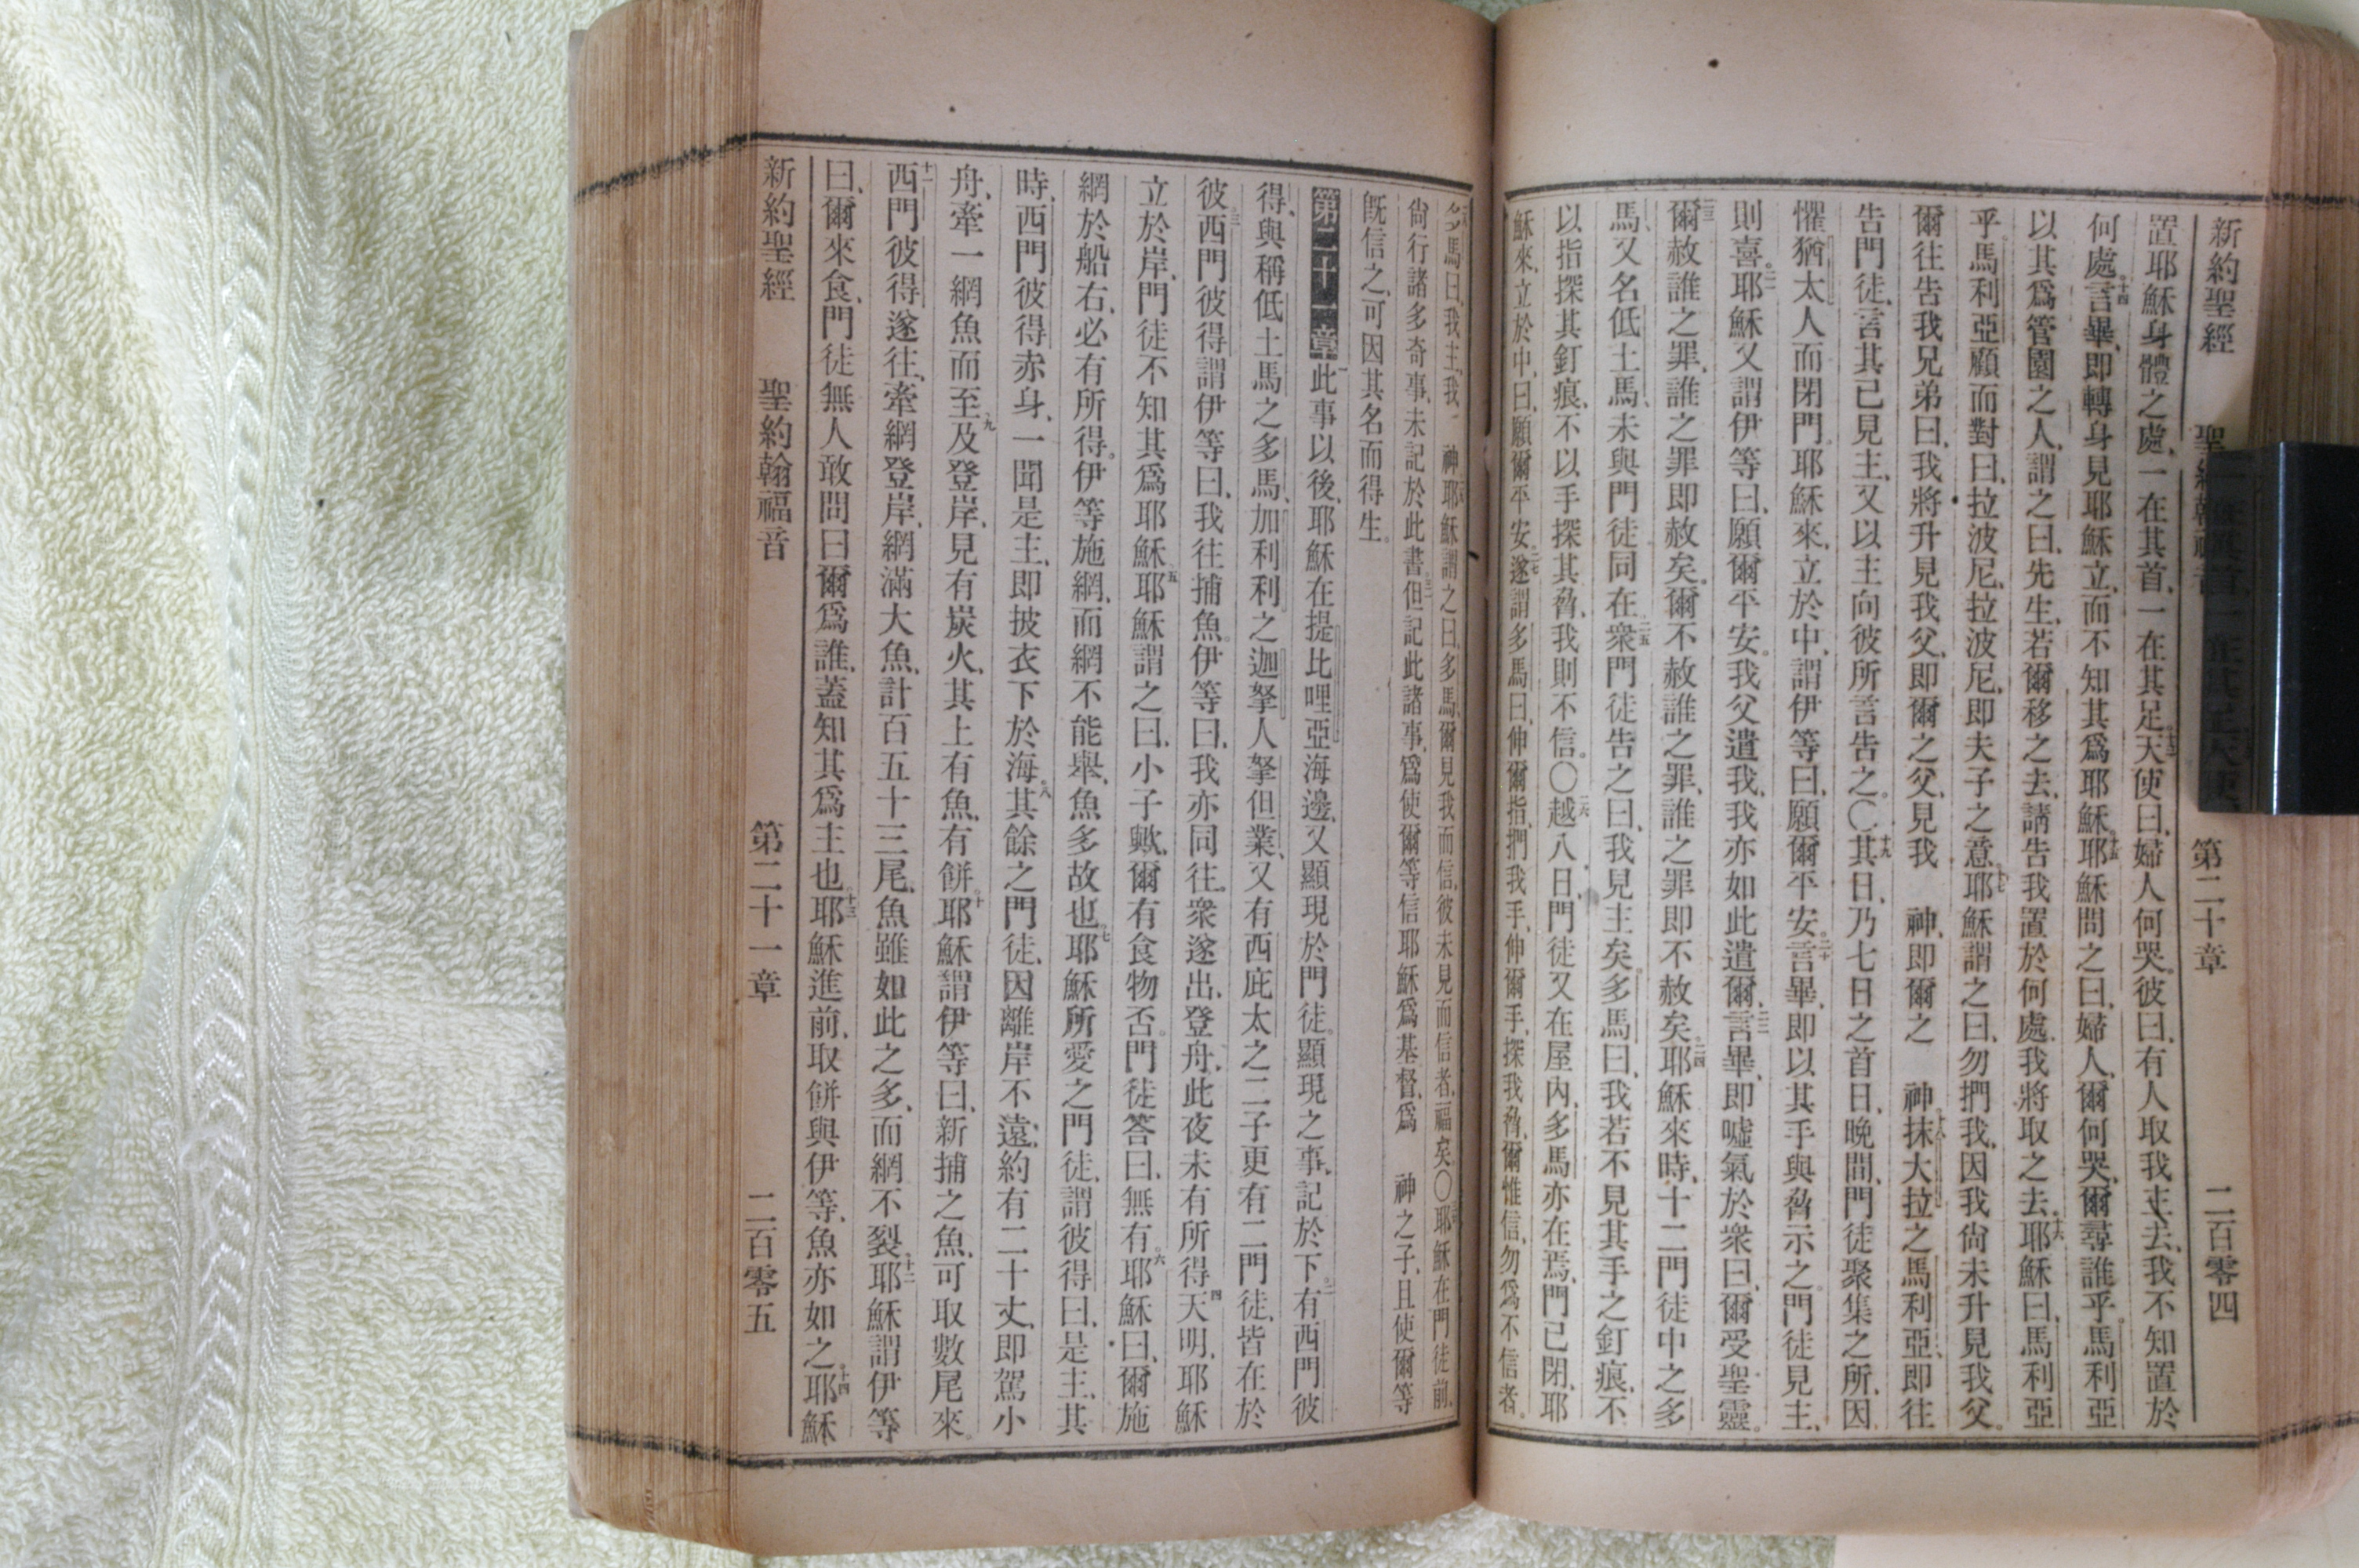 新約聖經 第二十章 二百零四
置耶穌身體之處、一在其首、一在其足、十三天使曰、婦人何哭。彼曰、有人取我主去、我不知置於
何處。十四言畢、即轉身見耶穌立、而不知其爲耶穌。十五耶穌問之曰、婦人、爾何哭、爾尋誰乎。馬利亞
以其爲管園之人、謂之曰、先生、若爾移之去、請告我置於何處、我將取之去。十六耶穌曰、馬利亞
乎。馬利亞顧而對曰、拉波尼、拉波尼、即夫子之意。十七耶穌謂之曰、勿捫我、因我尙未升見我父。
爾往告我兄弟曰、我將升見我父、即爾之父、見我 神、即爾之 神。十八抹大拉之馬利亞、即往
告門徒、言其已見主、又以主向彼所言告之。〇十九其日、乃七日之首日、晚間、門徒聚集之所、因
懼猶太人而閉門。耶穌來、立於中、謂伊等曰、願爾平安。二十言畢、即以其手與脅示之。門徒見主、
則喜。二一耶穌又謂伊等曰、願爾平安。我父遣我、我亦如此遣爾、二二言畢、即噓氣於衆曰、爾受聖靈。
二三爾赦誰之罪、誰之罪即赦矣。爾不赦誰之罪、誰之罪即不赦矣。二四耶穌來時、十二門徒中之多
馬、又名低土馬、未與門徒同在。二五衆門徒告之曰、我見主矣。多馬曰、我若不見其手之釘痕、不
以指探其釘痕、不以手探其脅、我則不信。〇二六越八日、門徒又在屋內、多馬亦在焉、門已閉、耶
穌來、立於中、曰、願爾平安。二七遂謂多馬曰、伸爾指、捫我手、伸爾手、探我脅、爾惟信、勿爲不信者。
多馬曰、我主、我 神。耶穌謂之曰、多馬、爾見我而信、彼未見而信者、福矣〇耶穌在門徒前、
尙行諸多奇事、未記於此書。但記此諸事、爲使爾等信耶穌爲基督、爲 神之子、且使爾等
旣信之、可因其名而得生。
第二十一章 此事以後、耶穌在提比哩亞海邊、又顯現於門徒。顯現之事、記於下。二有西門彼
得、與稱低土馬之多馬、加利利之迦拏人拏但業、又有西庇太之二子、更有二門徒、皆在於
彼。三西門彼得謂伊等曰、我往捕魚。伊等曰、我亦同往。衆遂出、登舟、此夜未有所得。四天明、耶穌
立於岸、門徒不知其爲耶穌。五耶穌謂之曰、小子歟、爾有食物否。門徒答曰、無有。六耶穌曰、爾施
網於船右、必有所得。伊等施網、而網不能舉、魚多故也。七耶穌所愛之門徒、謂彼得曰、是主、其
時、西門彼得赤身、一聞是主、即披衣下於海。八其餘之門徒、因離岸不遠、約有二十丈、即駕小
舟、牽一網魚而至。九及登岸、見有炭火、其上有魚、有餅。十耶穌謂伊等曰、新捕之魚、可取數尾來。
十一西門彼得遂往、牽網登岸、網滿大魚、計百五十三尾。魚雖如此之多、而網不裂。十二耶穌謂伊等
曰、爾來食、門徒無人敢問曰爾爲誰、蓋知其爲主也。十三耶穌進前、取餅與伊等、魚亦如之。十四耶穌
新約聖經 聖約翰福音 第二十一章 二百零五